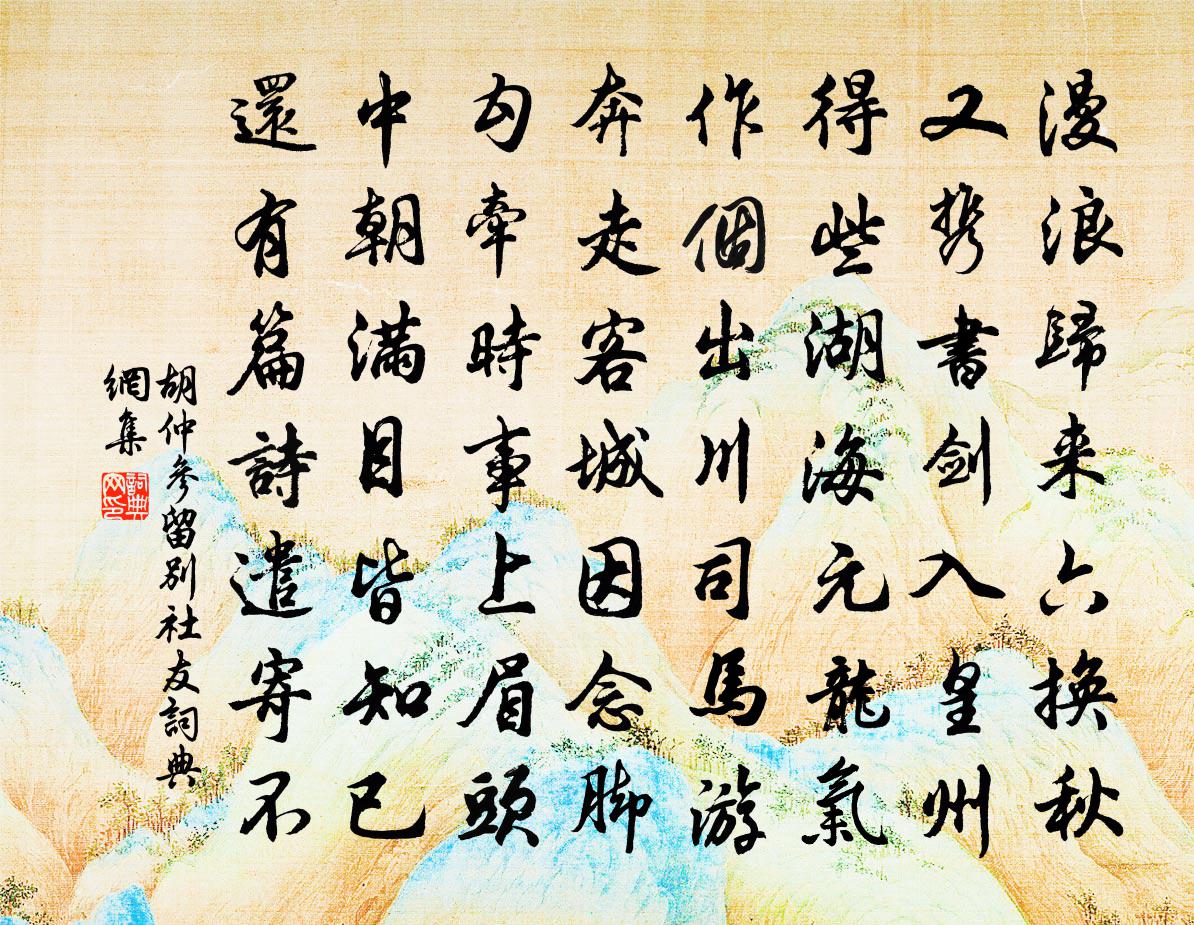 漫浪歸来六換秋
又携書剑入皇州
得些湖海元龍氣
作個出川司馬游
奔走客城因念脚
勾牽時事上眉頭
中朝滿目皆知已
還有篇詩遣寄不
胡仲參留别社友詞典
網集
詞典
网印